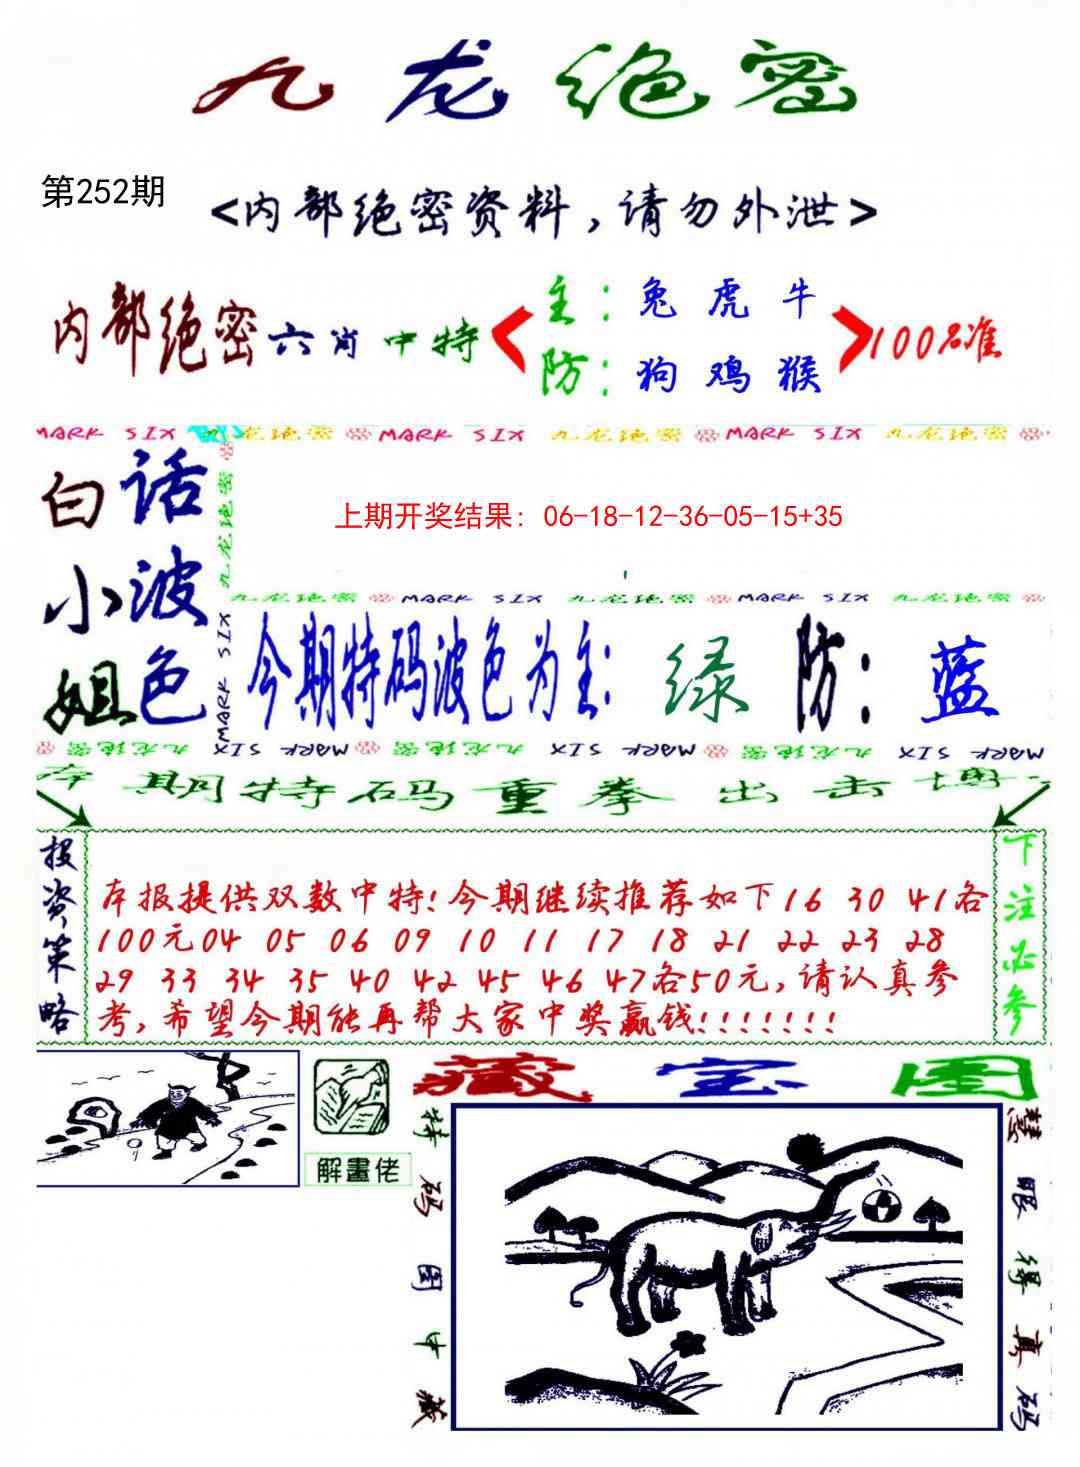 九龙绝密
第252期
<内部绝密资料，请勿外泄>
内部绝密六肖中特
主：兔 虎 牛
防：狗 鸡 猴
100%准
MARK SIX 九龙绝密 MARK SIX 九龙绝密 MARK SIX 九龙绝密
白话小波姐色
九龙绝密
MARK SIX
上期开奖结果：06-18-12-36-05-15+35
九龙绝密 MARK SIX 九龙绝密 MARK SIX 九龙绝密
今期特码波色为主：绿 防：蓝
九龙绝密 MARK SIX 九龙绝密 MARK SIX 九龙绝密 MARK SIX
本期特码重拳出击博
投资策略
本报提供双数中特！今期继续推荐如下16 30 41各
100元04 05 06 09 10 11 17 18 21 22 23 28
29 33 34 35 40 42 45 46 47各50元，请认真参
考，希望今期能再帮大家中奖赢钱！！！！！！！
下注必参
解畫佬
藏宝图
特码图中藏
慧眼得真码